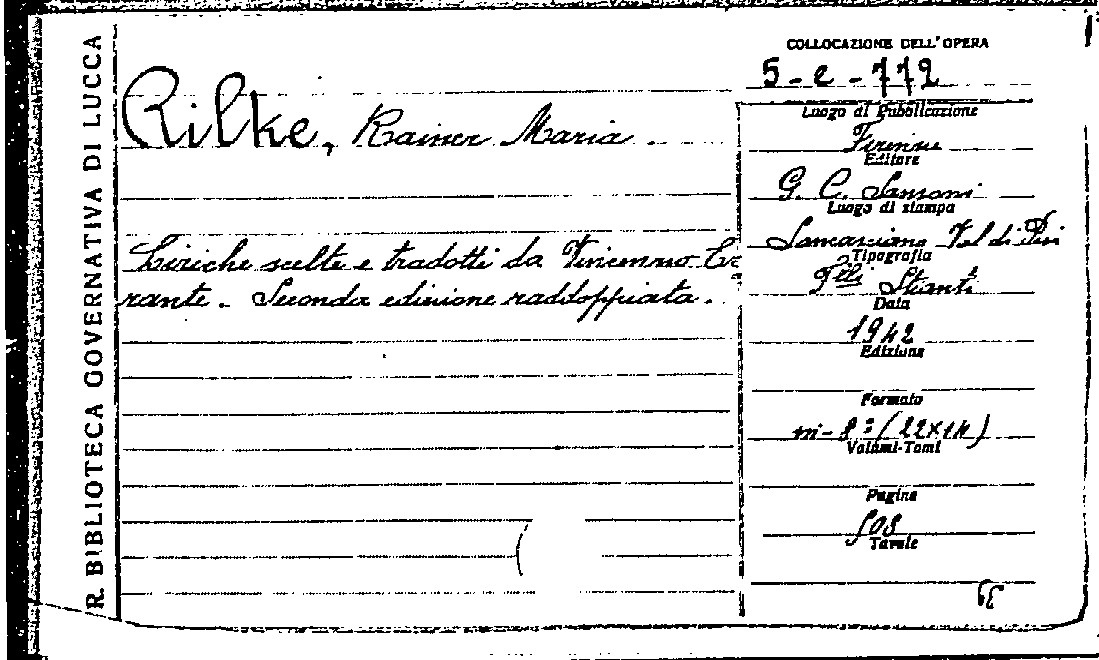 R. BIBLIOTECA GOVERNATIVA DI LUCCA
Rilke, Rainer Maria.
Liriche scelte e tradotti da Vincenzo Er
rante. - Seconda edizione raddoppiata.
COLLOCAZIONE DELL'OPERA
5-e-772
Luogo di Pubblicazione
Firenze
Editore
G. C. Sansoni
Luogo di stampa
Sancasciano Val di Pesa
Tipografia
F.lli Stianti
Data
1942
Edizione
Formato
in-8° (22x14)
Volumi-Tomi
Pagine
508
Tavole